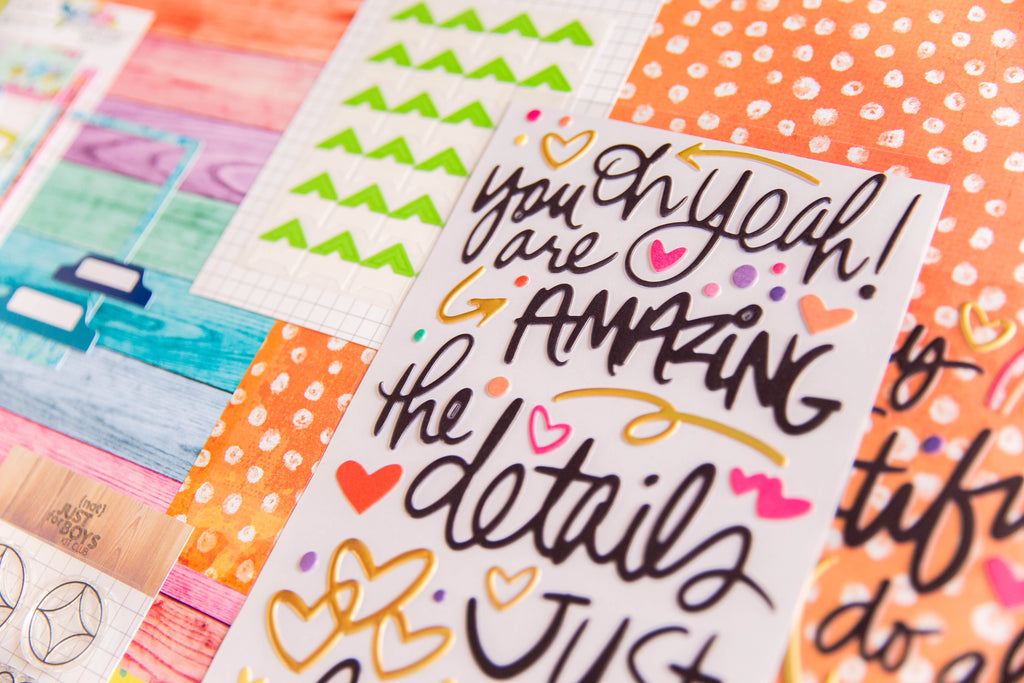 oh yeah!
you
are
AMAZING
the
details
Just
{not}
JUST
for BOYS
KIT CLUB
do